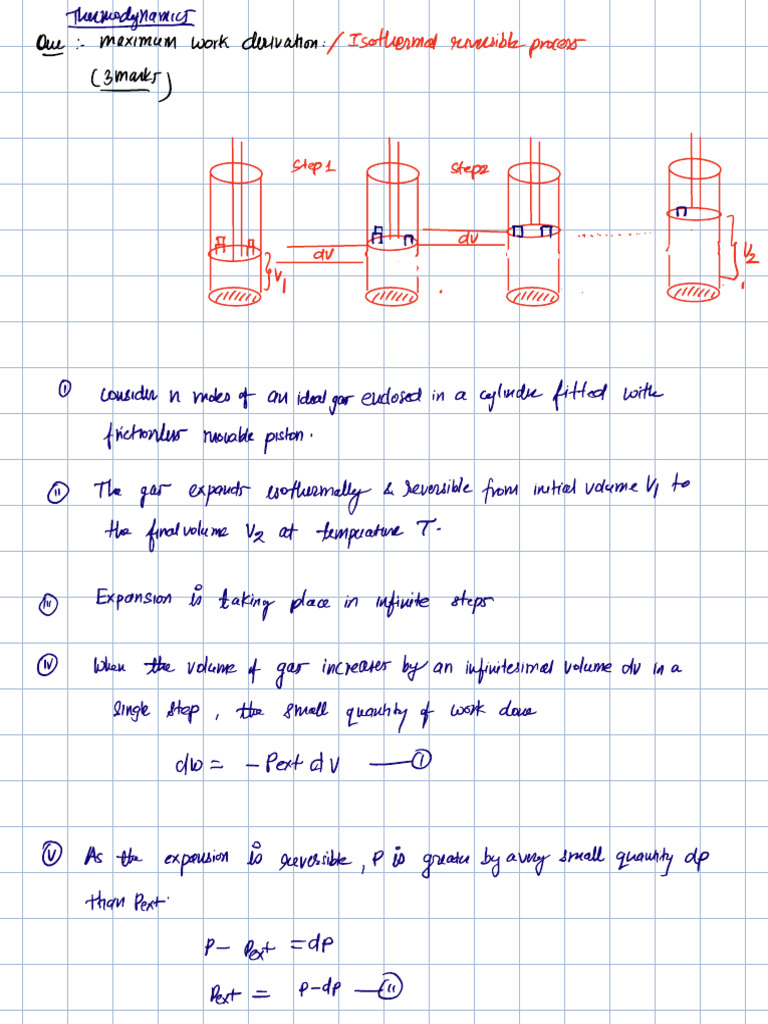 Thermodynamics
Que :- maximum work derivation: / Isothermal reversible process
(3 marks)
Step 1
Step 2
dv
dv
V1
V2
(i) Consider n moles of an ideal gas enclosed in a cylinder fitted with
frictionless movable piston.
(ii) The gas expands isothermally & reversible from initial volume V1 to
the final volume V2 at temperature T.
(iii) Expansion is taking place in infinite steps
(iv) When the volume of gas increases by an infinitesimal volume dv in a
single step, the small quantity of work done
dw = - Pext dv —— (1)
(v) As the expansion is reversible, P is greater by a very small quantity dp
than Pext.
P - Pext = dp
Pext = P-dp —— (11)